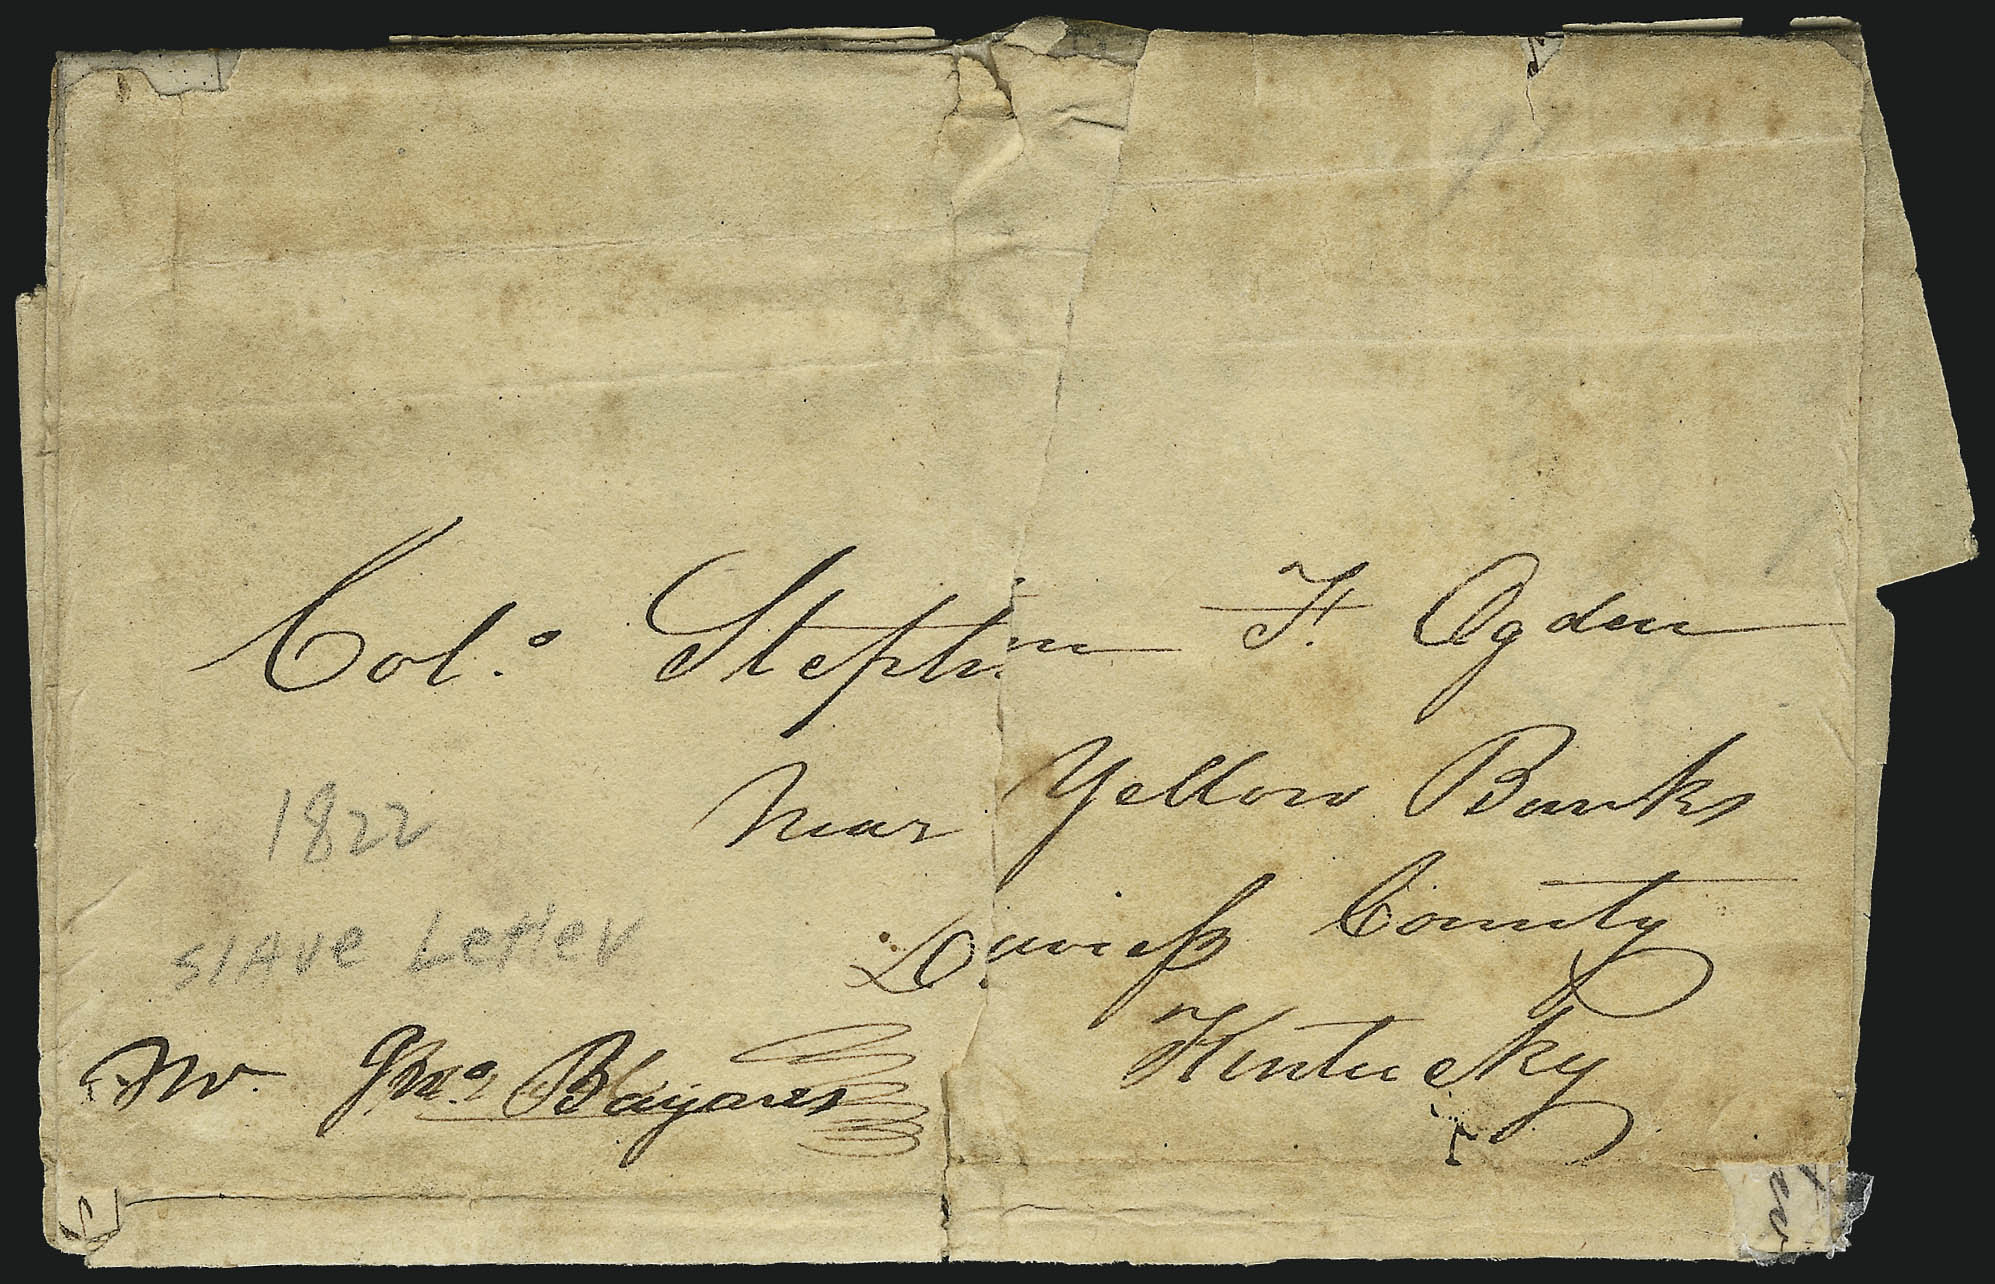 Col.o Stephen F. Ogden
Near Yellow Banks
Daviess County
Kentucky
1822
SlAve Letter
Mr. Jno.